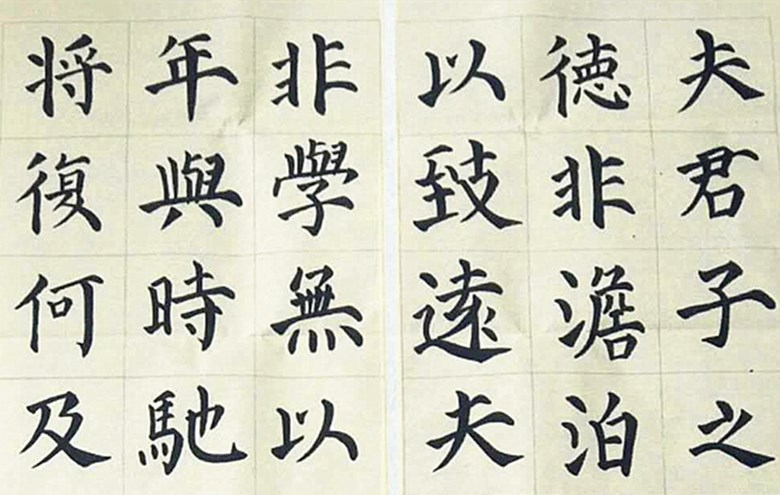 夫君子之
德非澹泊
以致遠夫
非學無以
年與時馳
将復何及